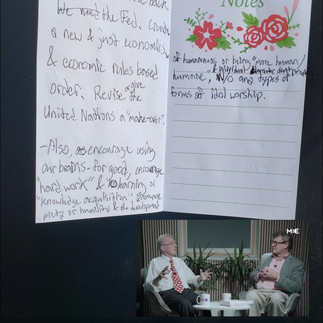 We need the Fed. Create
a new & just economics
& economic rules based
order. Revise & give
United Nations a "make-over".
-Also, encourage using
our brains - for good, encourage
"hard work" & learning or
"knowledge acquisition"
piety or humility & the development
Notes
of humaneness or being "more human/
humane, w/o any types of
forms of idol worship.